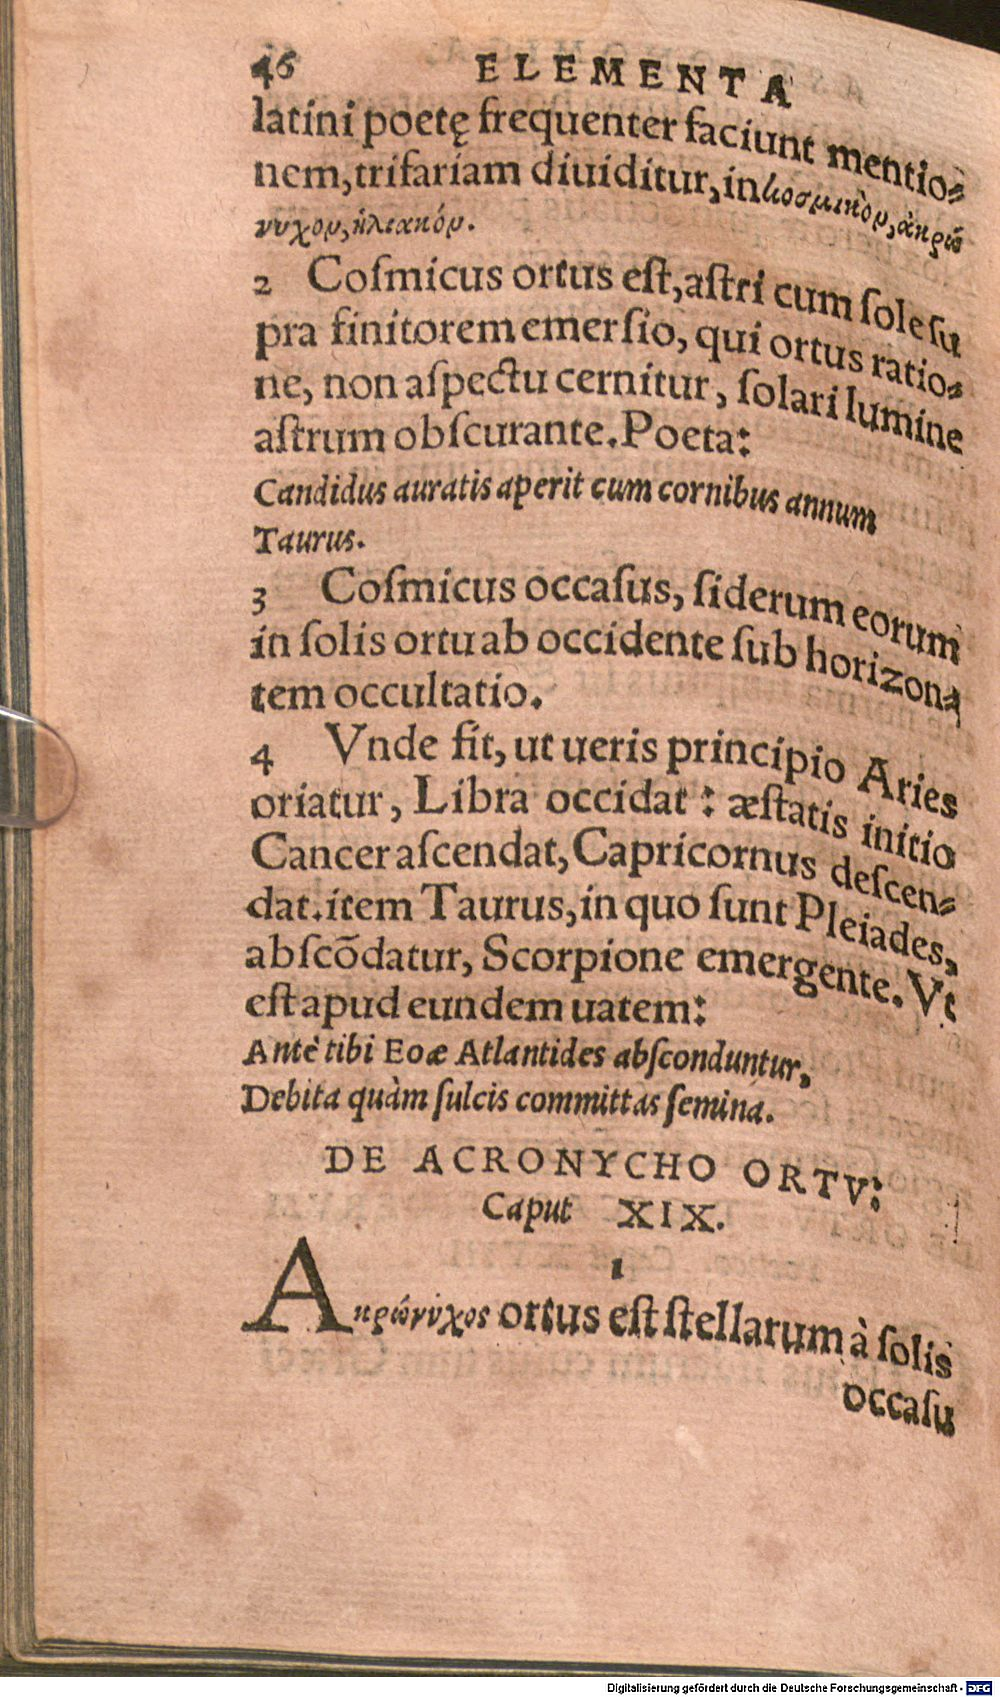 46 ELEMENTA
latini poetę frequenter faciunt mentio⸗
nem, trifariam diuiditur, in κοσμικὸν, ἀκρώ
νυχον, ἡλιακόν.
2 Coſmicus ortus eſt, aſtri cum ſole ſu
pra finitorem emerſio, qui ortus ratio⸗
ne, non aſpectu cernitur, ſolari lumine
aſtrum obſcurante. Poeta:
Candidus auratis aperit cum cornibus annum
Taurus.
3 Coſmicus occaſus, ſiderum eorum
in ſolis ortu ab occidente ſub horizon⸗
tem occultatio.
4 Vnde fit, ut ueris principio Aries
oriatur, Libra occidat: æſtatis initio
Cancer aſcendat, Capricornus deſcen⸗
dat. item Taurus, in quo ſunt Pleiades,
abſcōdatur, Scorpione emergente. Vt
eſt apud eundem uatem:
Antè tibi Eoæ Atlantides abſconduntur,
Debita quàm ſulcis committas ſemina.
DE ACRONYCHO ORTV:
Caput XIX.
1
Ακρώνυχος ortus eſt ſtellarum à ſolis
occaſu
Digitalisierung gefördert durch die Deutsche Forschungsgemeinschaft - DFG